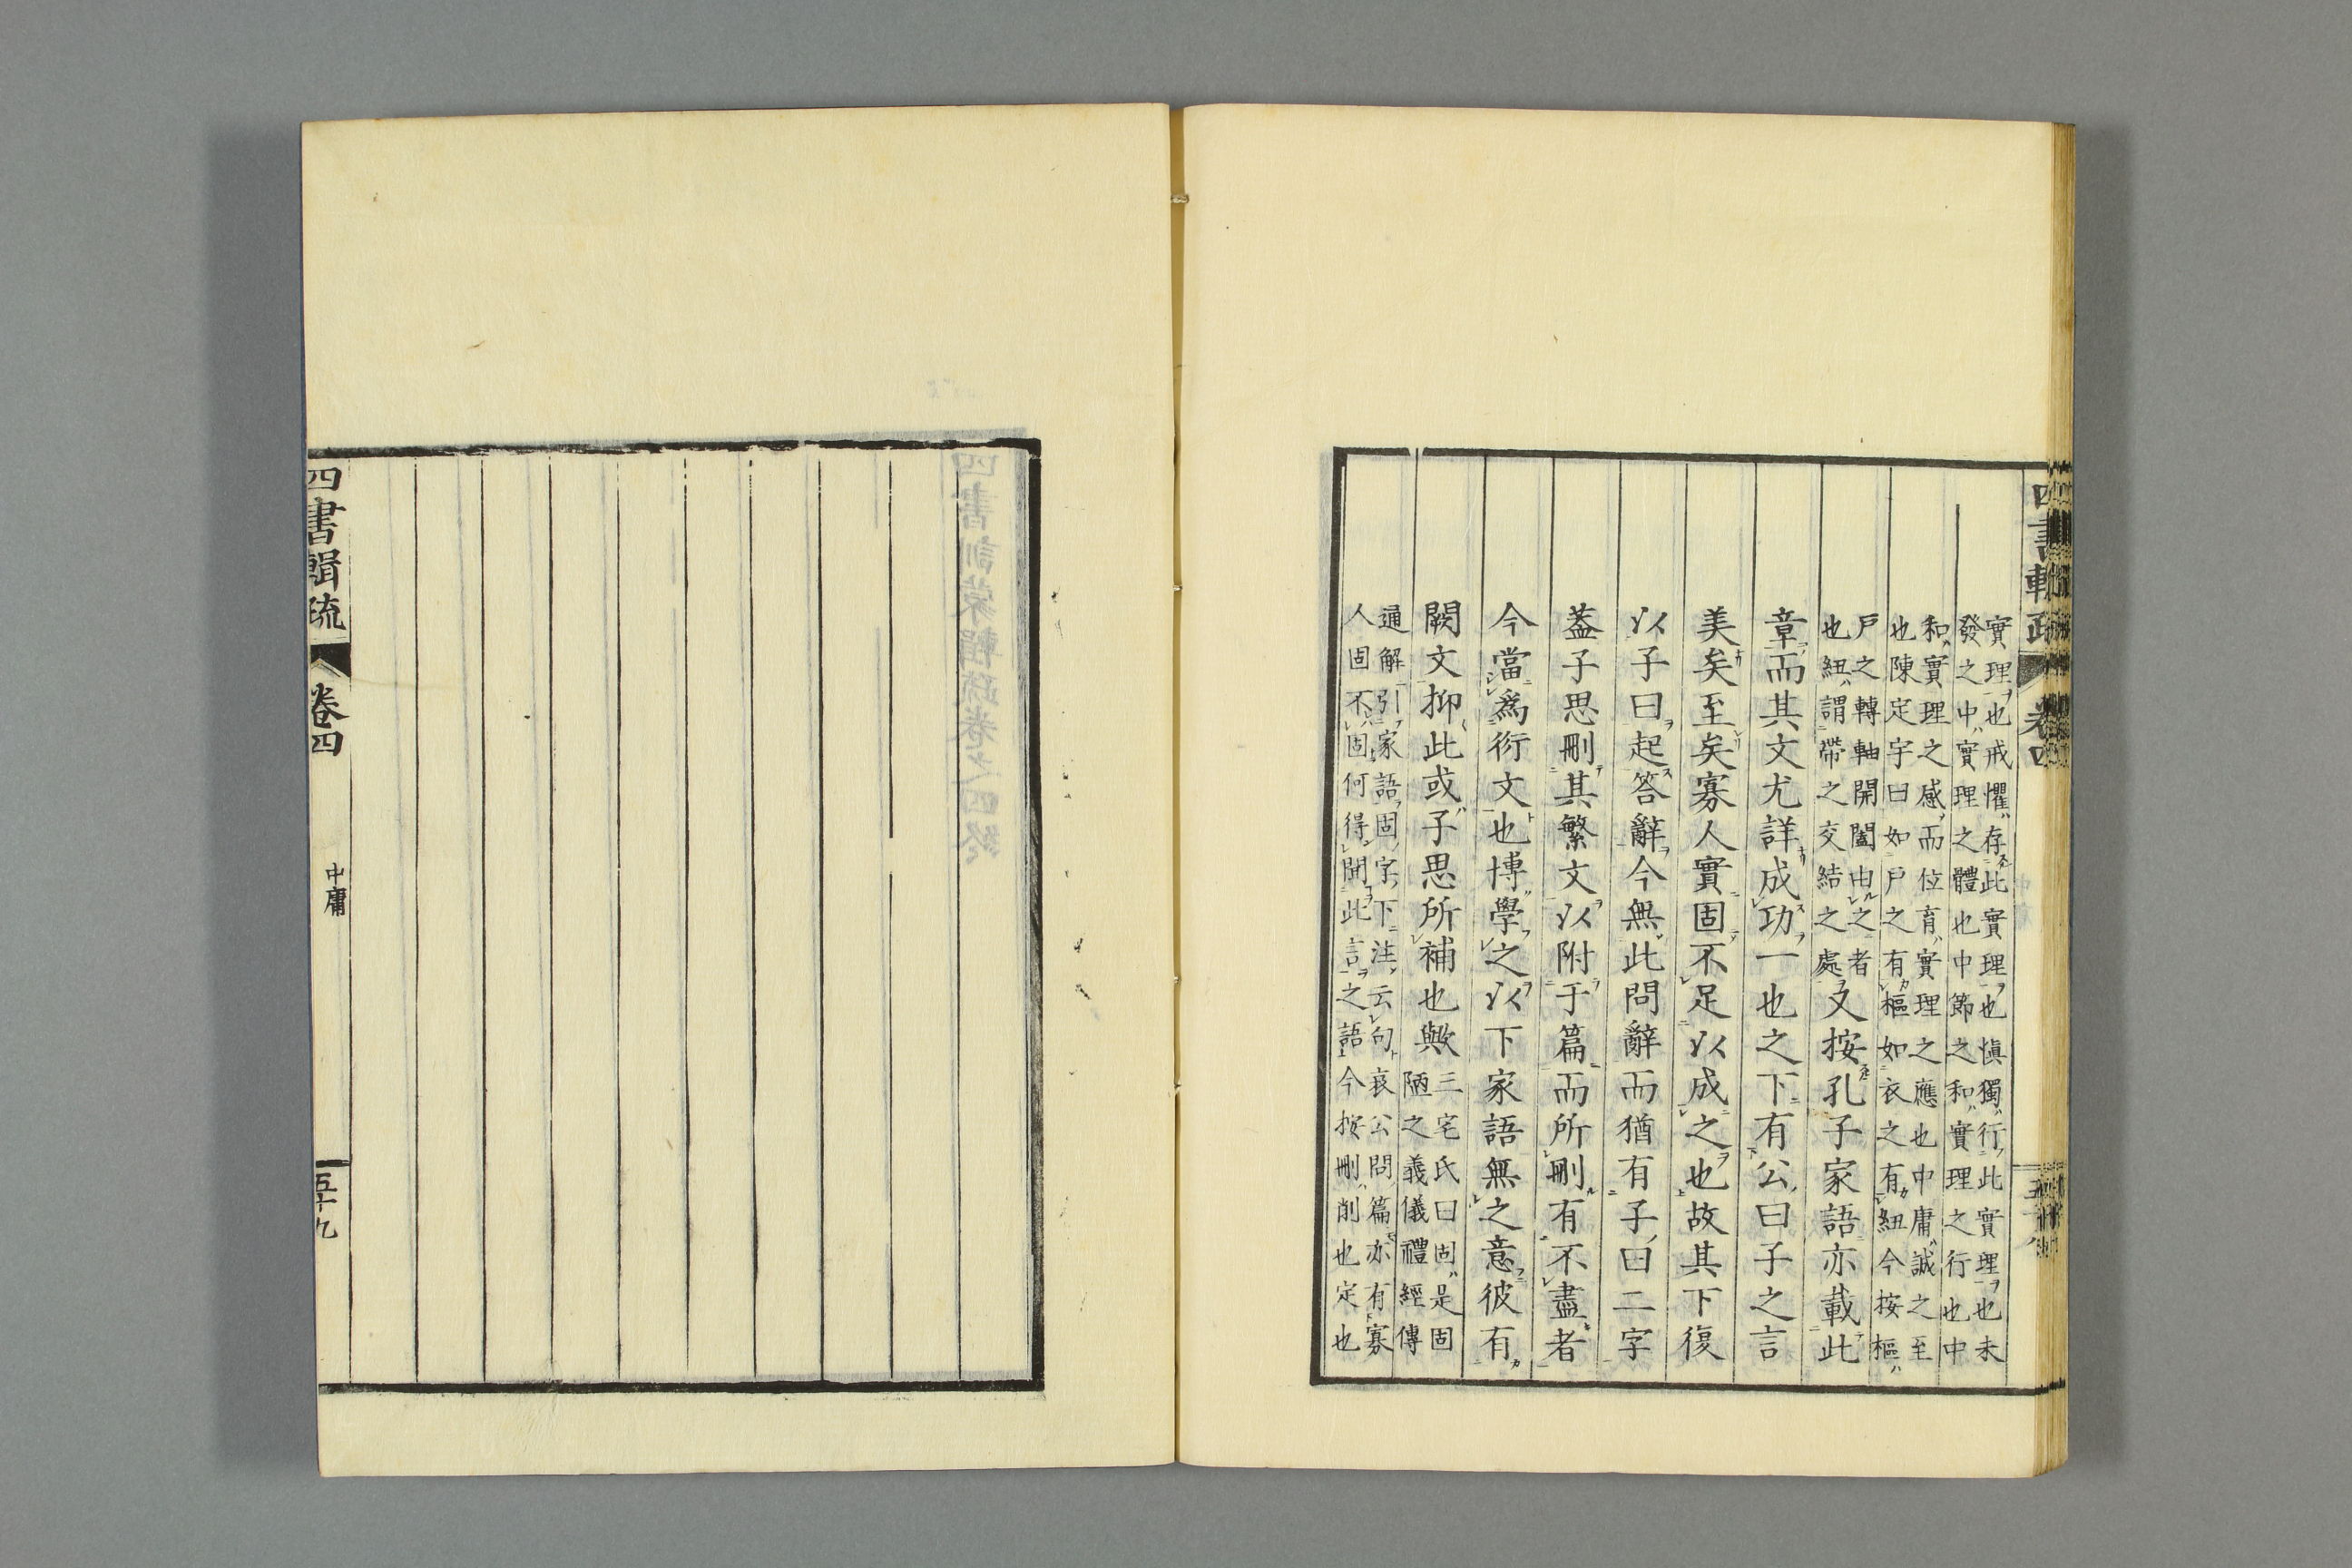 四書輯疏 卷四
實理也戒懼存此實理也愼獨行此實理也未
發之中實理之體也中節之和實理之行也中
和實理之感而位育實理之應也中庸誠之至
也陳定宇曰如戶之有樞如衣之有紐今按樞
戶之轉軸開闔由之者
也紐謂帶之交結之處又按孔子家語亦載此
章而其文尤詳成功一也之下有公曰子之言
美矣至矣寡人實固不足以成之也故其下復
以子曰起答辭今無此問辭而猶有子曰二字
葢子思刪其繁文以附于篇而所刪有不盡者
今當爲衍文也博學之以下家語無之意彼有
闕文抑此或子思所補也歟三宅氏曰固是固
陋之義儀禮經傳
通解引家語固字下注云句哀公問篇亦有寡
人固不固何得聞此言之語今按刪削也定也
四書輯疏 卷四 中庸 五十九